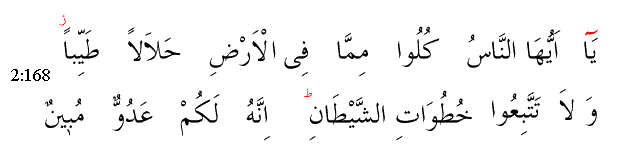 يَآ اَيُّهَا النَّاسُ كُلُوا مِمَّا فِى الْاَرْضِ حَلَالاً طَيِّباًۘ
2:168
وَ لَا تَتَّبِعُوا خُطُوَاتِ الشَّيْطَانِۜ اِنَّهُ لَكُمْ عَدُوٌّ مُبٖينٌ